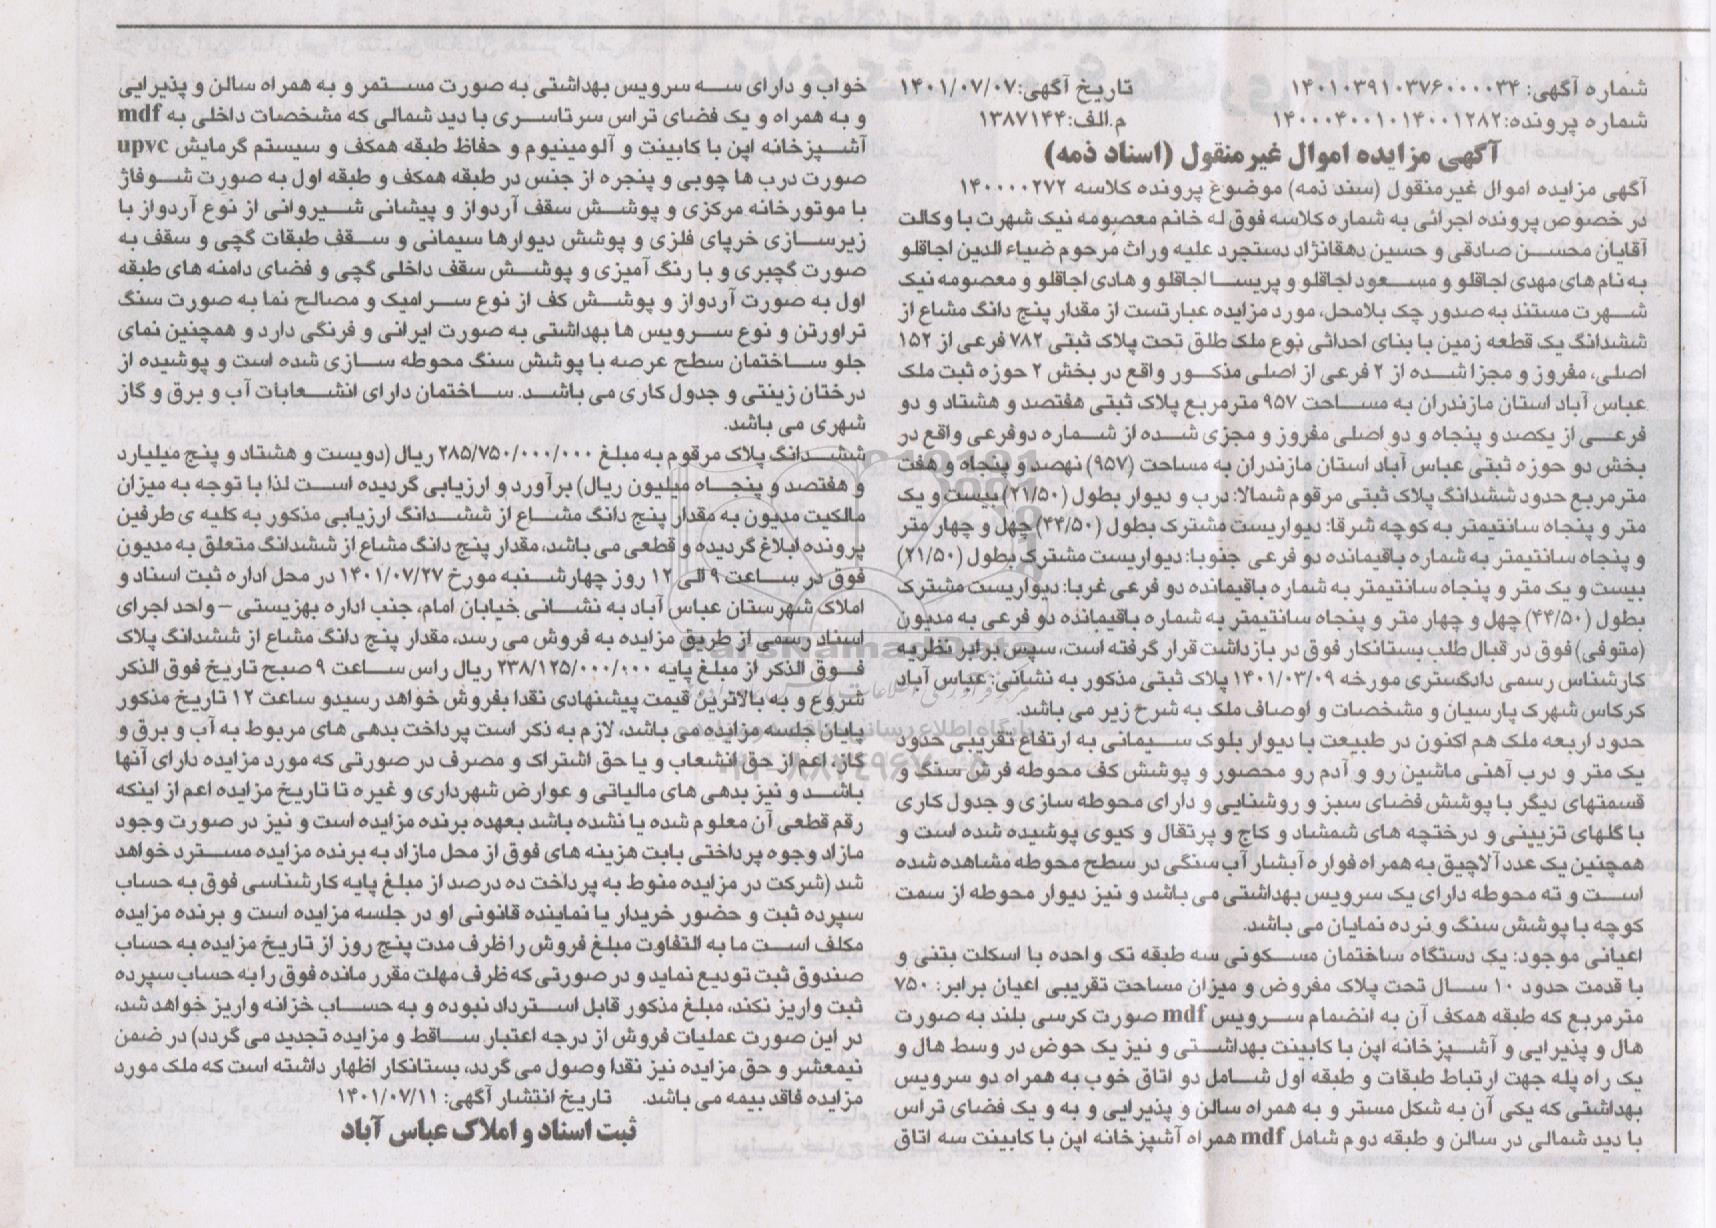 شماره آگهی: ۱۴۰۱۰۳۹۱۰۳۷۶۰۰۰۰۳۴
تاریخ آگهی:۱۴۰۱/۰۷/۰۷
شماره پرونده:۱۴۰۰۰۴۰۰۱۰۱۴۰۰۱۲۸۲
م.الف:۱۳۸۷۱۴۴
آگهی مزایده اموال غیرمنقول (اسناد ذمه)
آگهی مزایده اموال غیرمنقول (سند ذمه) موضوع پرونده کلاسه ۱۴۰۰۰۰۲۷۲
در خصوص پرونده اجرائی به شماره کلاسه فوق له خانم معصومه نیک شهرت با وکالت
آقایان محسن صادقی و حسین دهقانژاد دستجرد علیه وراث مرحوم ضیاء الدین اجاقلو
به نام های مهدی اجاقلو و مسعود اجاقلو و پریسا اجاقلو و هادی اجاقلو و معصومه نیک
شهرت مستند به صدور چک بلامحل، مورد مزایده عبارتست از مقدار پنج دانگ مشاع از
ششدانگ یک قطعه زمین با بنای احداثی نوع ملک طلق تحت پلاک ثبتی ۷۸۲ فرعی از ۱۵۲
اصلی، مفروز و مجزا شده از ۲ فرعی از اصلی مذکور واقع در بخش ۲ حوزه ثبت ملک
عباس آباد استان مازندران به مساحت ۹۵۷ مترمربع پلاک ثبتی هفتصد و هشتاد و دو
فرعی از یکصد و پنجاه و دو اصلی مفروز و مجزی شده از شماره دوفرعی واقع در
بخش دو حوزه ثبتی عباس آباد استان مازندران به مساحت (۹۵۷) نهصد و پنجاه و هفت
مترمربع حدود ششدانگ پلاک ثبتی مرقوم شمالا: درب و دیوار بطول (۲۱/۵۰) بیست و یک
متر و پنجاه سانتیمتر به کوچه شرقا: دیواریست مشترک بطول (۴۴/۵۰) چهل و چهار متر
و پنجاه سانتیمتر به شماره باقیمانده دو فرعی جنوبا: دیواریست مشترک بطول (۲۱/۵۰)
بیست و یک متر و پنجاه سانتیمتر به شماره باقیمانده دو فرعی غربا: دیواریست مشترک
بطول (۴۴/۵۰) چهل و چهار متر و پنجاه سانتیمتر به شماره باقیمانده دو فرعی به مدیون
(متوفی) فوق در قبال طلب بستانکار فوق در بازداشت قرار گرفته است، سپس برابر نظریه
کارشناس رسمی دادگستری مورخه ۱۴۰۱/۰۳/۰۹ پلاک ثبتی مذکور به نشانی: عباس آباد
کرکاس شهرک پارسیان و مشخصات و اوصاف ملک به شرح زیر می باشد.
حدود اربعه ملک هم اکنون در طبیعت با دیوار بلوک سیمانی به ارتفاع تقریبی حدود
یک متر و درب آهنی ماشین رو و آدم رو محصور و پوشش کف محوطه فرش سنگ و
قسمتهای دیگر با پوشش فضای سبز و روشنایی و دارای محوطه سازی و جدول کاری
با گلهای تزیینی و درختچه های شمشاد و کاج و پرتقال و کیوی پوشیده شده است و
همچنین یک عدد آلاچیق به همراه فواره آبشار آب سنگی در سطح محوطه مشاهده شده
است و ته محوطه دارای یک سرویس بهداشتی می باشد و نیز دیوار محوطه از سمت
کوچه با پوشش سنگ و نرده نمایان می باشد.
اعیانی موجود: یک دستگاه ساختمان مسکونی سه طبقه تک واحده با اسکلت بتنی و
با قدمت حدود ۱۰ سال تحت پلاک مفروض و میزان مساحت تقریبی اعیان برابر: ۷۵۰
مترمربع که طبقه همکف آن به انضمام سرویس mdf صورت کرسی بلند به صورت
هال و پذیرایی و آشپزخانه اپن با کابینت بهداشتی و نیز یک حوض در وسط هال و
یک راه پله جهت ارتباط طبقات و طبقه اول شامل دو اتاق خوب به همراه دو سرویس
بهداشتی که یکی آن به شکل مستر و به همراه سالن و پذیرایی و به و یک فضای تراس
با دید شمالی در سالن و طبقه دوم شامل mdf همراه آشپزخانه اپن با کابینت سه اتاق
خواب و دارای سه سرویس بهداشتی به صورت مستمر و به همراه سالن و پذیرایی
و به همراه و یک فضای تراس سرتاسری با دید شمالی که مشخصات داخلی به mdf
آشپزخانه اپن با کابینت و آلومینیوم و حفاظ طبقه همکف و سیستم گرمایش upvc
صورت درب ها چوبی و پنجره از جنس در طبقه همکف و طبقه اول به صورت شوفاژ
با موتورخانه مرکزی و پوشش سقف آردواز و پیشانی شیروانی از نوع آردواز با
زیرسازی خرپای فلزی و پوشش دیوارها سیمانی و سقف طبقات گچی و سقف به
صورت گچبری و با رنگ آمیزی و پوشش سقف داخلی گچی و فضای دامنه های طبقه
اول به صورت آردواز و پوشش کف از نوع سرامیک و مصالح نما به صورت سنگ
تراورتن و نوع سرویس ها بهداشتی به صورت ایرانی و فرنگی دارد و همچنین نمای
جلو ساختمان سطح عرصه با پوشش سنگ محوطه سازی شده است و پوشیده از
درختان زینتی و جدول کاری می باشد. ساختمان دارای انشعابات آب و برق و گاز
شهری می باشد.
ششدانگ پلاک مرقوم به مبلغ ۲۸۵/۷۵۰/۰۰۰/۰۰۰ ریال (دویست و هشتاد و پنج میلیارد
و هفتصد و پنجاه میلیون ریال) برآورد و ارزیابی گردیده است لذا با توجه به میزان
مالکیت مدیون به مقدار پنج دانگ مشاع از ششدانگ ارزیابی مذکور به کلیه ی طرفین
پرونده ابلاغ گردیده و قطعی می باشد، مقدار پنج دانگ مشاع از ششدانگ متعلق به مدیون
فوق در ساعت ۹ الی ۱۲ روز چهارشنبه مورخ ۱۴۰۱/۰۷/۲۷ در محل اداره ثبت اسناد و
املاک شهرستان عباس آباد به نشانی خیابان امام، جنب اداره بهزیستی – واحد اجرای
اسناد رسمی از طریق مزایده به فروش می رسد، مقدار پنج دانگ مشاع از ششدانگ پلاک
فوق الذکر از مبلغ پایه ۲۳۸/۱۲۵/۰۰۰/۰۰۰ ریال راس ساعت ۹ صبح تاریخ فوق الذکر
شروع و به بالاترین قیمت پیشنهادی نقدا بفروش خواهد رسیدو ساعت ۱۲ تاریخ مذکور
پایان جلسه مزایده می باشد، لازم به ذکر است پرداخت بدهی های مربوط به آب و برق و
گاز، اعم از حق انشعاب و یا حق اشتراک و مصرف در صورتی که مورد مزایده دارای آنها
باشد و نیز بدهی های مالیاتی و عوارض شهرداری و غیره تا تاریخ مزایده اعم از اینکه
رقم قطعی آن معلوم شده یا نشده باشد بعهده برنده مزایده است و نیز در صورت وجود
مازاد وجوه پرداختی بابت هزینه های فوق از محل مازاد به برنده مزایده مسترد خواهد
شد (شرکت در مزایده منوط به پرداخت ده درصد از مبلغ پایه کارشناسی فوق به حساب
سپرده ثبت و حضور خریدار یا نماینده قانونی او در جلسه مزایده است و برنده مزایده
مکلف است ما به التفاوت مبلغ فروش را ظرف مدت پنج روز از تاریخ مزایده به حساب
صندوق ثبت تودیع نماید و در صورتی که ظرف مهلت مقرر مانده فوق را به حساب سپرده
ثبت واریز نکند، مبلغ مذکور قابل استرداد نبوده و به حساب خزانه واریز خواهد شد،
در این صورت عملیات فروش از درجه اعتبار ساقط و مزایده تجدید می گردد) در ضمن
نیمعشر و حق مزایده نیز نقدا وصول می گردد، بستانکار اظهار داشته است که ملک مورد
مزایده فاقد بیمه می باشد. تاریخ انتشار آگهی: ۱۴۰۱/۰۷/۱۱
ثبت اسناد و املاک عباس آباد